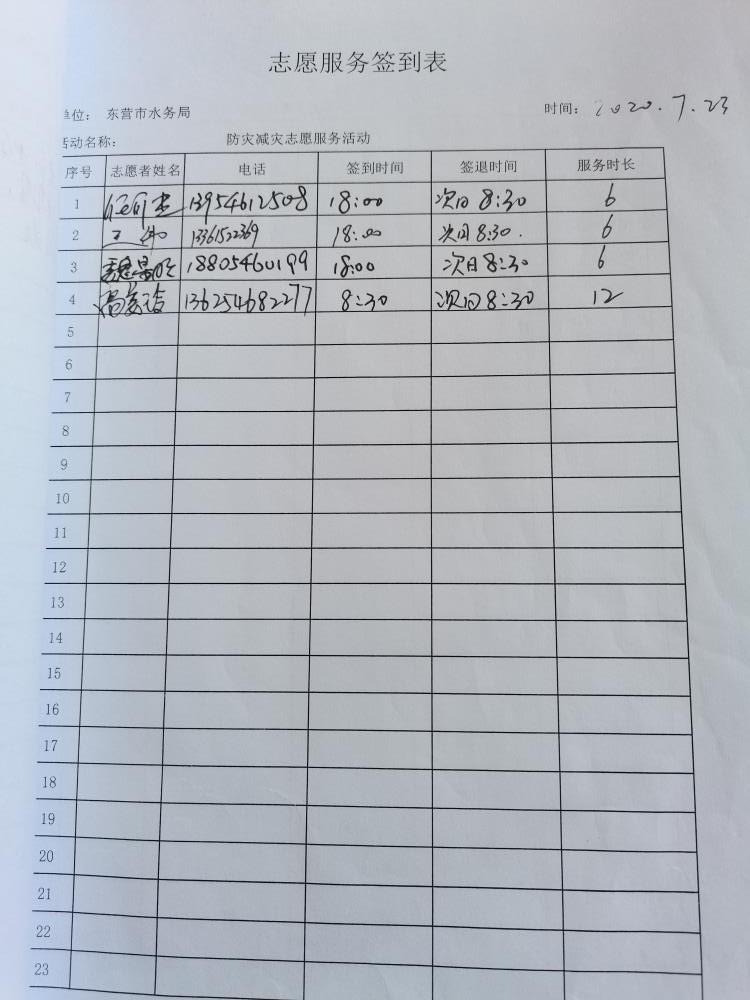 志愿服务签到表
单位： 东营市水务局 时间： 2020.7.23
活动名称： 防灾减灾志愿服务活动
序号 志愿者姓名 电话 签到时间 签退时间 服务时长
1 13954612508 18:00 次日8:30 6
2 18:00 次日8:30. 6
3 18805460199 18:00 次日8:30 6
4 8:30 次日8:30 12
5
6
7
8
9
10
11
12
13
14
15
16
17
18
19
20
21
22
23